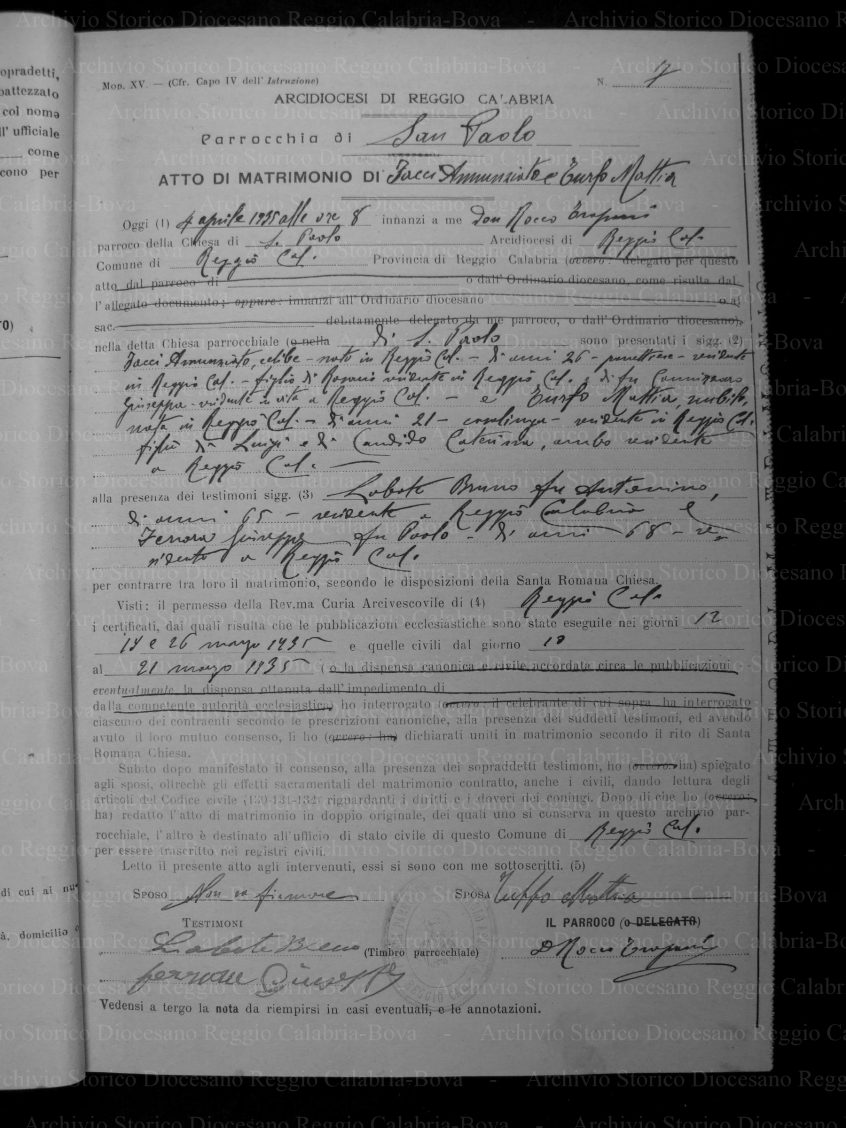 opradetti,
battezzato
col nome
ll' ufficiale
come
cono per
TO)
di cui ai nu-
à, domicilio o
Mod. XV. — (Cfr. Capo IV dell' Istruzione)
N. 7
ARCIDIOCESI DI REGGIO CALABRIA
Parrocchia di San Paolo
ATTO DI MATRIMONIO DI Annunziato e Mattia
Oggi (1) 4 aprile 1935 alle ore 8 innanzi a me don Rocco
parroco della Chiesa di S. Paolo Arcidiocesi di Reggio Cal.
Comune di Reggio Cal. Provincia di Reggio Calabria (ovvero: delegato per questo
atto dal parroco di o dall'Ordinario diocesano, come risulta dal
l'allegato documento; oppure: innanzi all'Ordinario diocesano o al
sac. debitamente delegato da me parroco, o dall'Ordinario diocesano),
nella detta Chiesa parrocchiale (o nella di S. Paolo sono presentati i sigg. (2)
Annunziato, celibe - nato in Reggio Cal. - di anni 26 - residente
in Reggio Cal. - figlio di residente in Reggio Cal. di fu
Giuseppa - residente in vita a Reggio Cal. - e Mattia, nubile,
nata in Reggio Cal. - di anni 21 - casalinga - residente in Reggio Cal.
figlia di Luigi e di Candido Caterina, ambo residente
a Reggio Cal.
alla presenza dei testimoni sigg. (3) Labate Bruno fu Antonino,
di anni 65 - residente a Reggio Calabria e
Giuseppe fu Paolo - di anni 68 - re-
sidente a Reggio Cal.
per contrarre tra loro il matrimonio, secondo le disposizioni della Santa Romana Chiesa.
Visti: il permesso della Rev.ma Curia Arcivescovile di (4) Reggio Cal.
i certificati, dai quali risulta che le pubblicazioni ecclesiastiche sono state eseguite nei giorni 12
19 e 26 marzo 1935 e quelle civili dal giorno 10
al 21 marzo 1935 (o la dispensa canonica e civile accordata circa le pubblicazioni
eventualmente, la dispensa ottenuta dall'impedimento di
dalla competente autorità ecclesiastica) ho interrogato (ovvero: il celebrante di cui sopra ha interrogato
ciascuno dei contraenti secondo le prescrizioni canoniche, alla presenza dei suddetti testimoni, ed avendo
avuto il loro mutuo consenso, li ho (ovvero: ha) dichiarati uniti in matrimonio secondo il rito di Santa
Romana Chiesa.
Subito dopo manifestato il consenso, alla presenza dei sopraddetti testimoni, ho (ovvero: ha) spiegato
agli sposi, oltrechè gli effetti sacramentali del matrimonio contratto, anche i civili, dando lettura degli
articoli del Codice civile (130-131-132) riguardanti i diritti e i doveri dei coniugi. Dopo di che ho (ovvero:
ha) redatto l'atto di matrimonio in doppio originale, dei quali uno si conserva in questo archivio par-
rocchiale, l'altro è destinato all'ufficio di stato civile di questo Comune di Reggio Cal.
per essere trascritto nei registri civili.
Letto il presente atto agli intervenuti, essi si sono con me sottoscritti. (5)
SPOSO Non sa firmare SPOSA Mattia
TESTIMONI IL PARROCO (o DELEGATO)
Labate Bruno (Timbro parrocchiale) D Rocco
Giuseppe
Vedensi a tergo la nota da riempirsi in casi eventuali, e le annotazioni.
Archivio Storico Diocesano Reggio Calabria-Bova